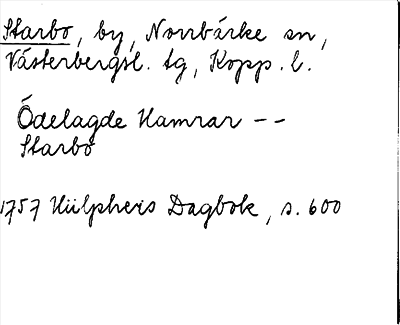 Starbo, by, Norrbärke sn,
Västerbergsl. tg, Kopp. l.
Ödelagde Hamrar --
Starbo
1757 Hülphers Dagbok, s. 600